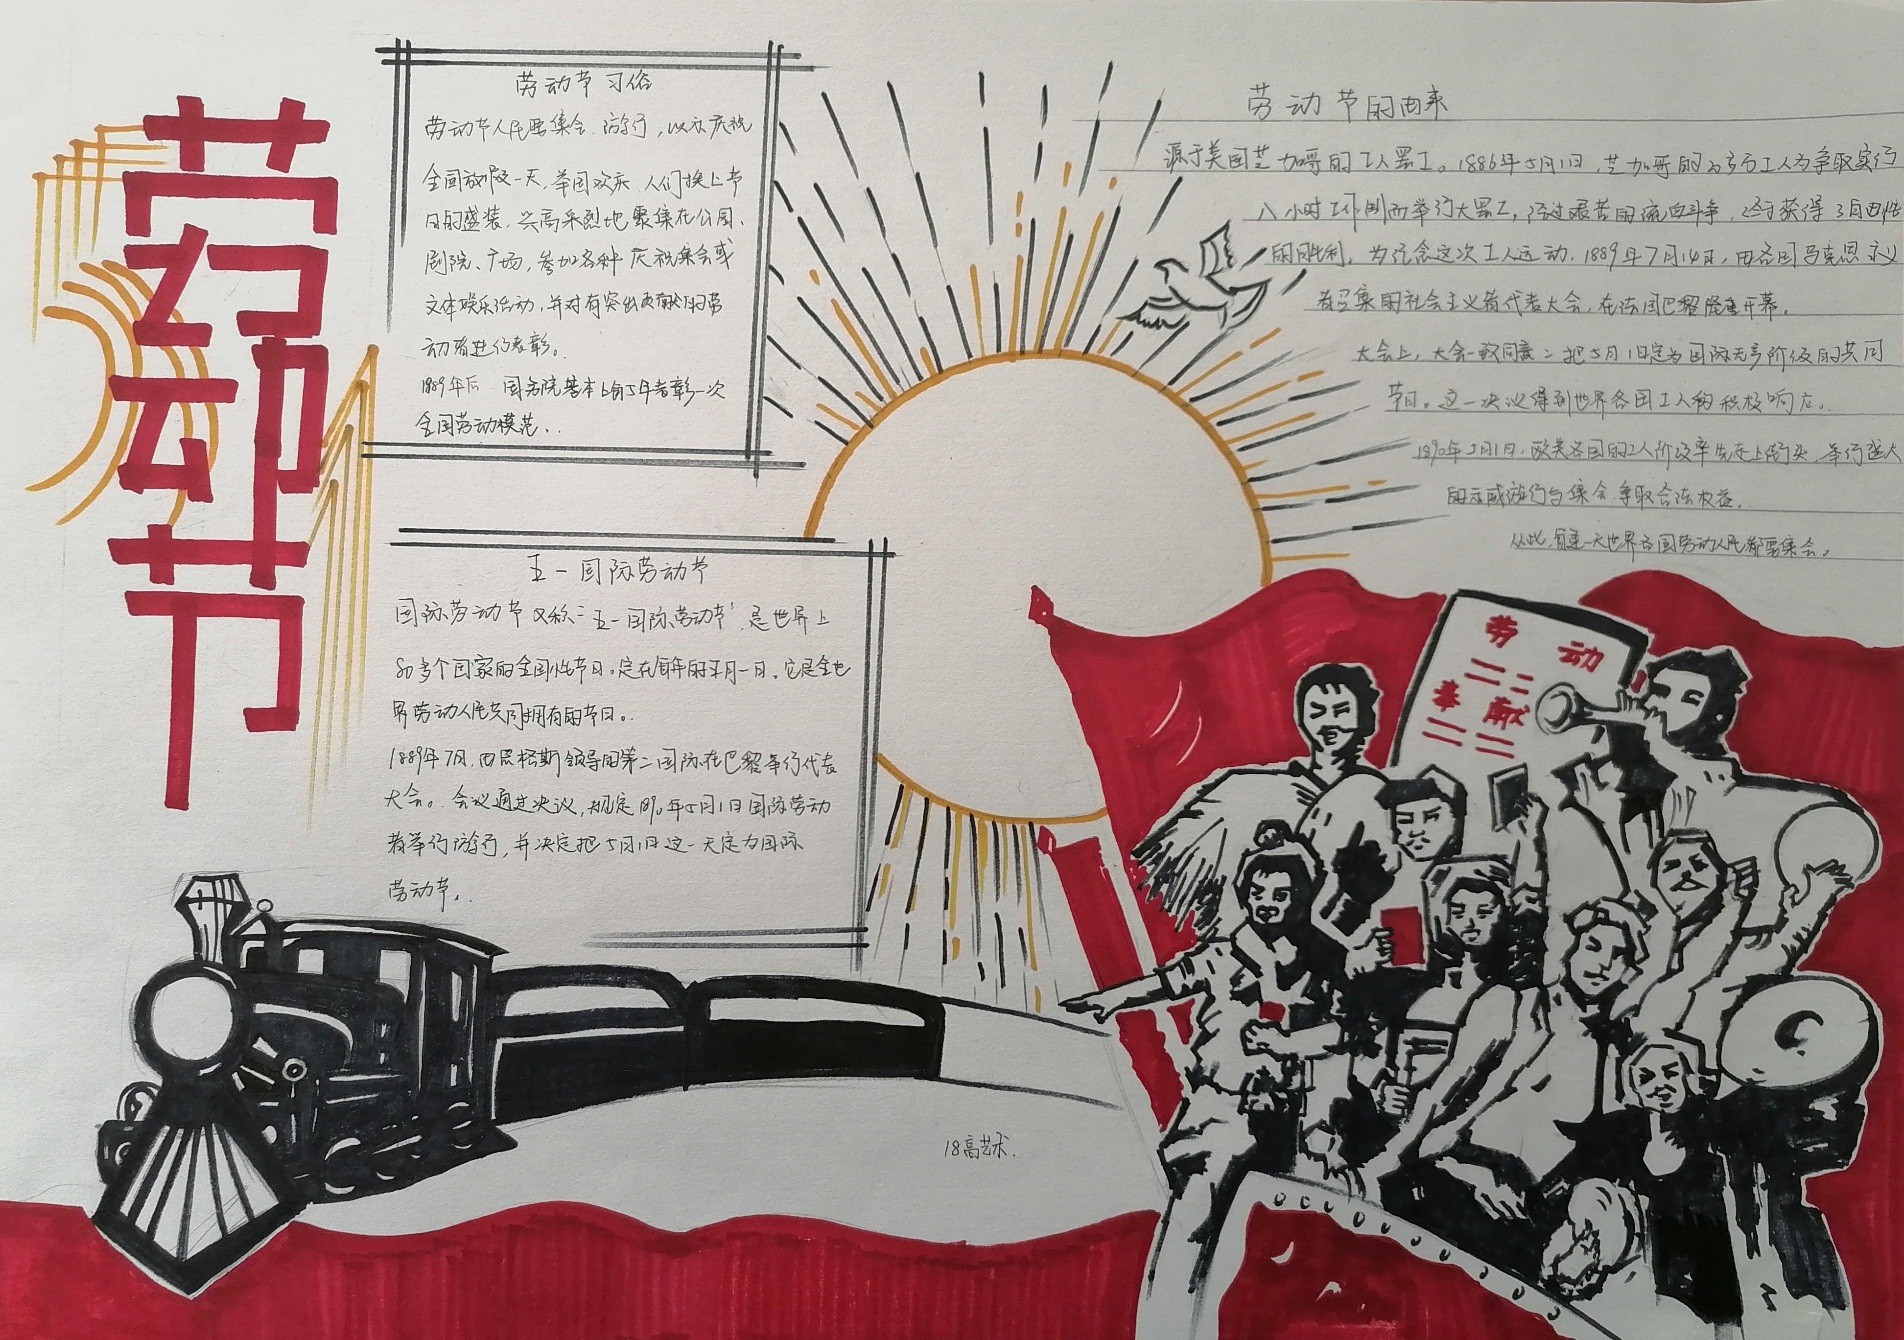 劳动节
劳动节习俗
劳动节人民要集会、游行，以示庆祝
全国放假一天，举国欢庆，人们换上节
日的盛装，兴高采烈地聚集在公园、
剧院、广场，参加各种庆祝集会或
文体娱乐活动，并对有突出贡献的劳
动者进行表彰。
1989年后，国务院基本上每5年表彰一次
全国劳动模范。
五一国际劳动节
国际劳动节又称"五一国际劳动节"，是世界上
80多个国家的全国性节日。定在每年的五月一日。它是全世
界劳动人民共同拥有的节日。
1889年7月，由恩格斯领导的第二国际在巴黎举行代表
大会。会议通过决议，规定1890年5月1日国际劳动
者举行游行，并决定把5月1日这一天定为国际
劳动节。
劳动节的由来
源于美国芝加哥的工人罢工。1886年5月1日，芝加哥的二十多万工人为争取实行
八小时工作制而举行大罢工，经过艰苦的流血斗争，终于获得了胜利性
的胜利，为纪念这次工人运动，1889年7月14日，由各国马克思主义
者召集的社会主义者代表大会，在法国巴黎隆重开幕。
大会上，大会一致同意：把5月1日定为国际无产阶级的共同
节日。这一决议得到世界各国工人的积极响应。
1890年5月1日，欧美各国的工人阶级率先走上街头，举行盛大
的示威游行与集会，争取合法权益。
从此，每逢这一天世界各国劳动人民都要集会。
劳动
奉献
18高艺术.